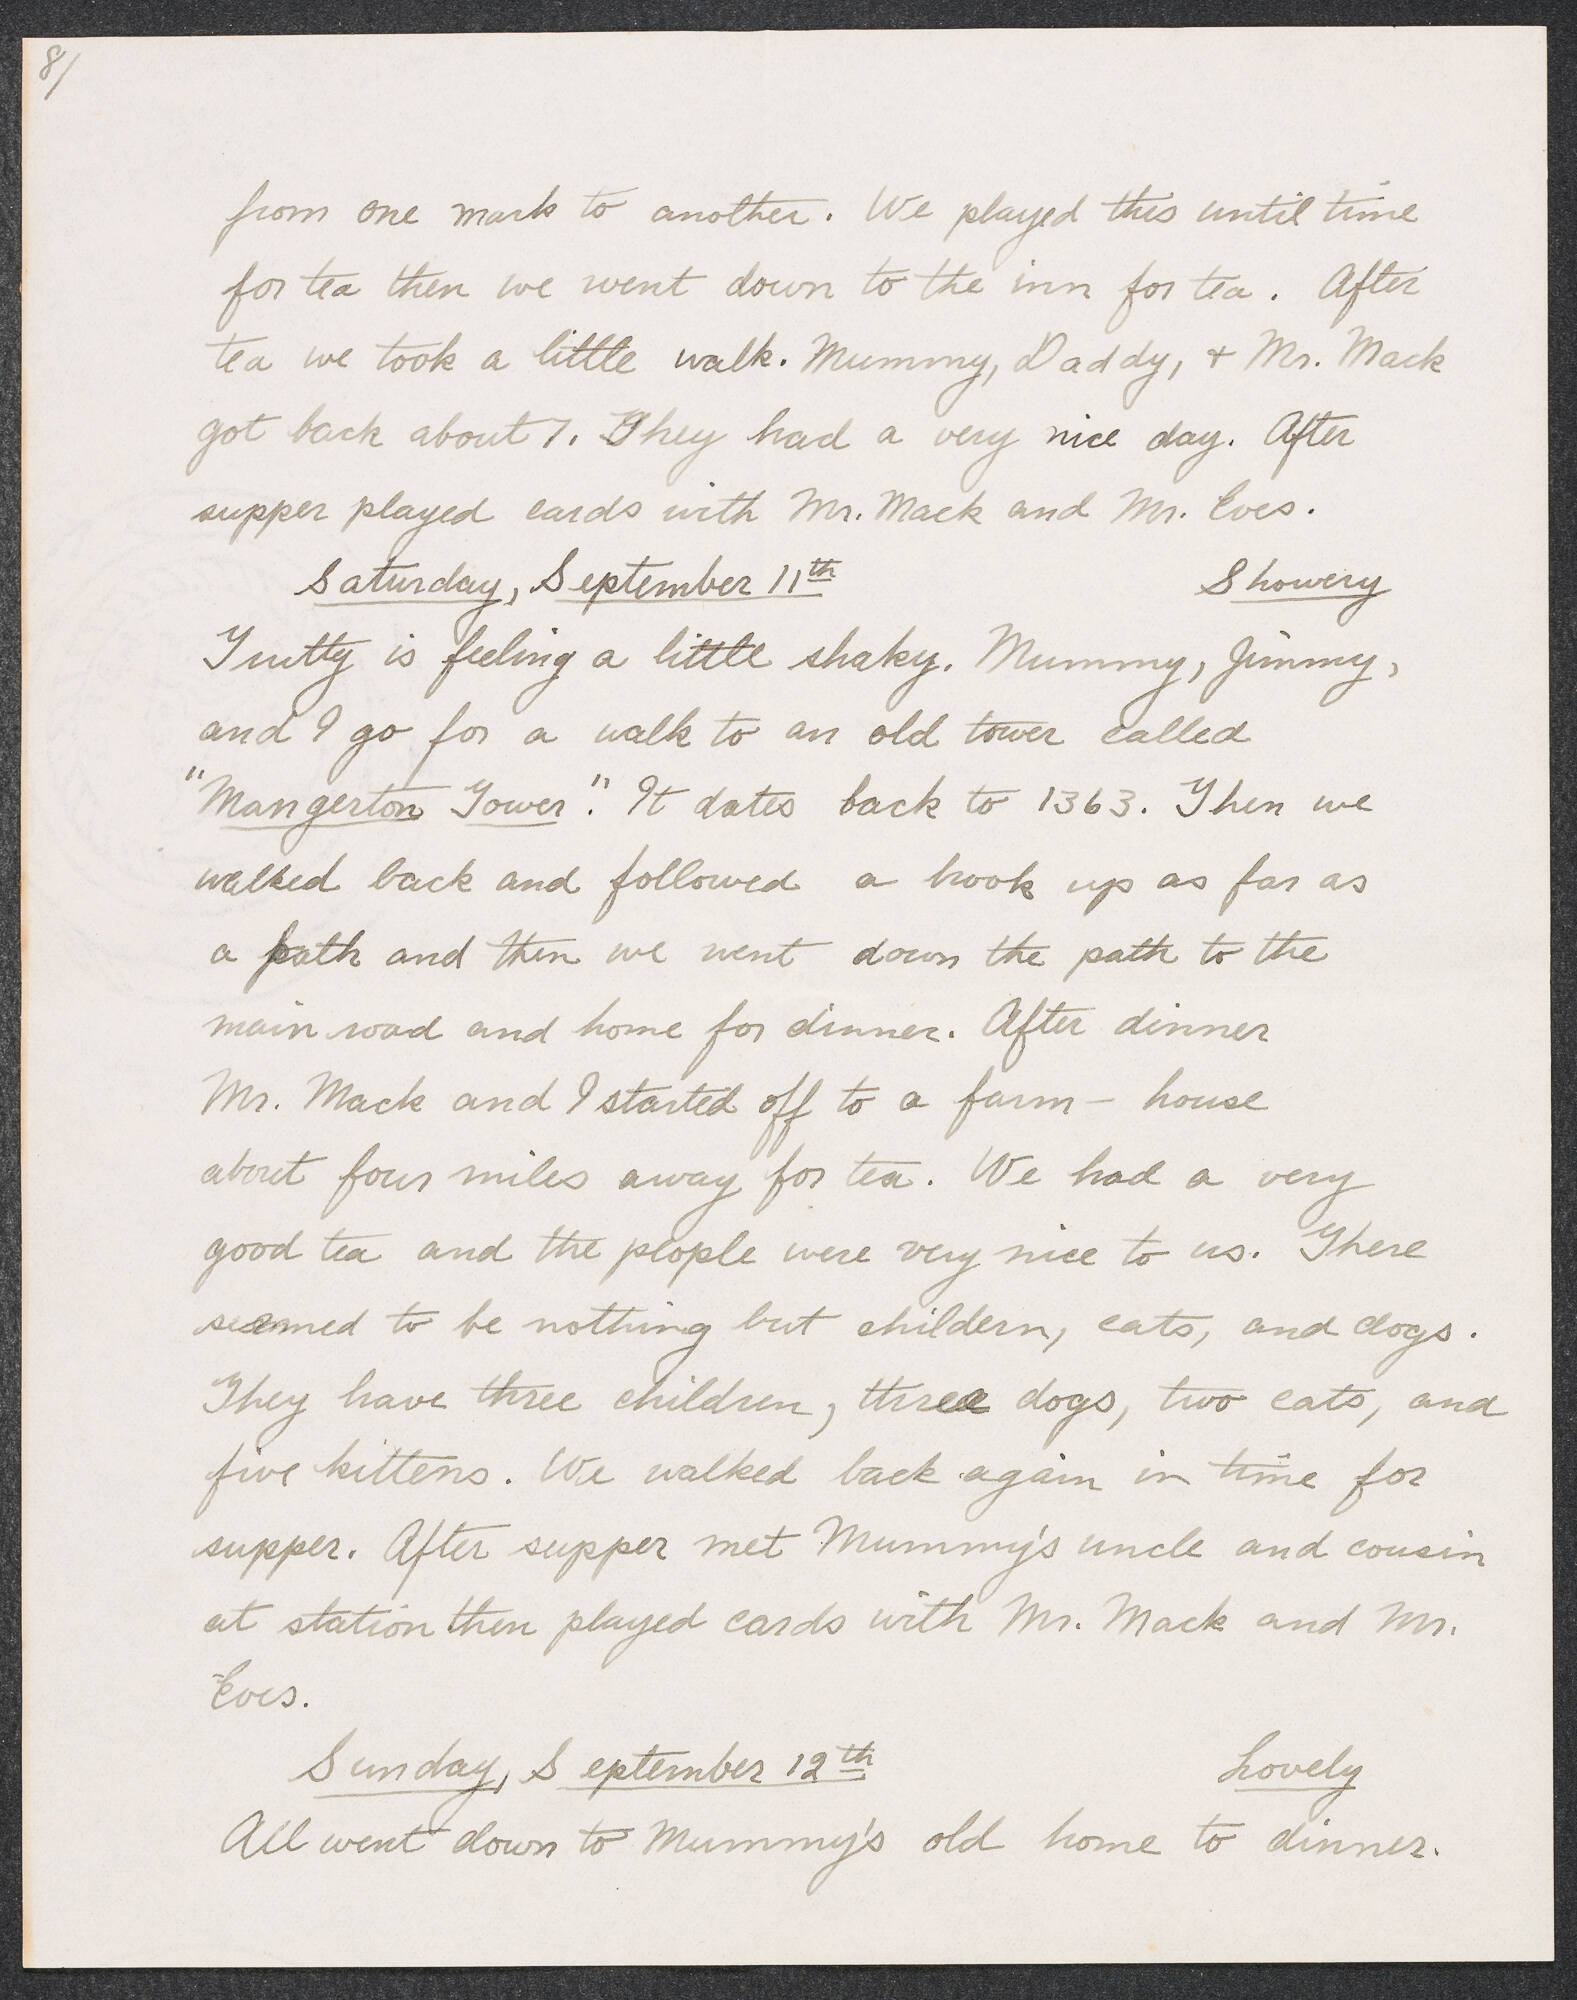 8/
from one mark to another. We played this until time
for tea then we went down to the inn for tea. After
tea we took a little walk. Mummy, Daddy, + Mr. Mack
got back about 7. They had a very nice day. After
supper played cards with Mr. Mack and Mr. Eves.
Saturday, September 11th Showery
Trutty is feeling a little shaky. Mummy, Jimmy,
and I go for a walk to an old tower called
"Mangerton Tower". It dates back to 1363. Then we
walked back and followed a brook up as far as
a path and then we went down the path to the
main road and home for dinner. After dinner
Mr. Mack and I started off to a farm - house
about four miles away for tea. We had a very
good tea and the people were very nice to us. There
seemed to be nothing but childern, cats, and dogs.
They have three children, three dogs, two cats, and
five kittens. We walked back again in time for
supper. After supper met Mummy's uncle and cousin
at station then played cards with Mr. Mack and Mr.
Eves.
Sunday, September 12th Lovely
All went down to Mummy's old home to dinner.